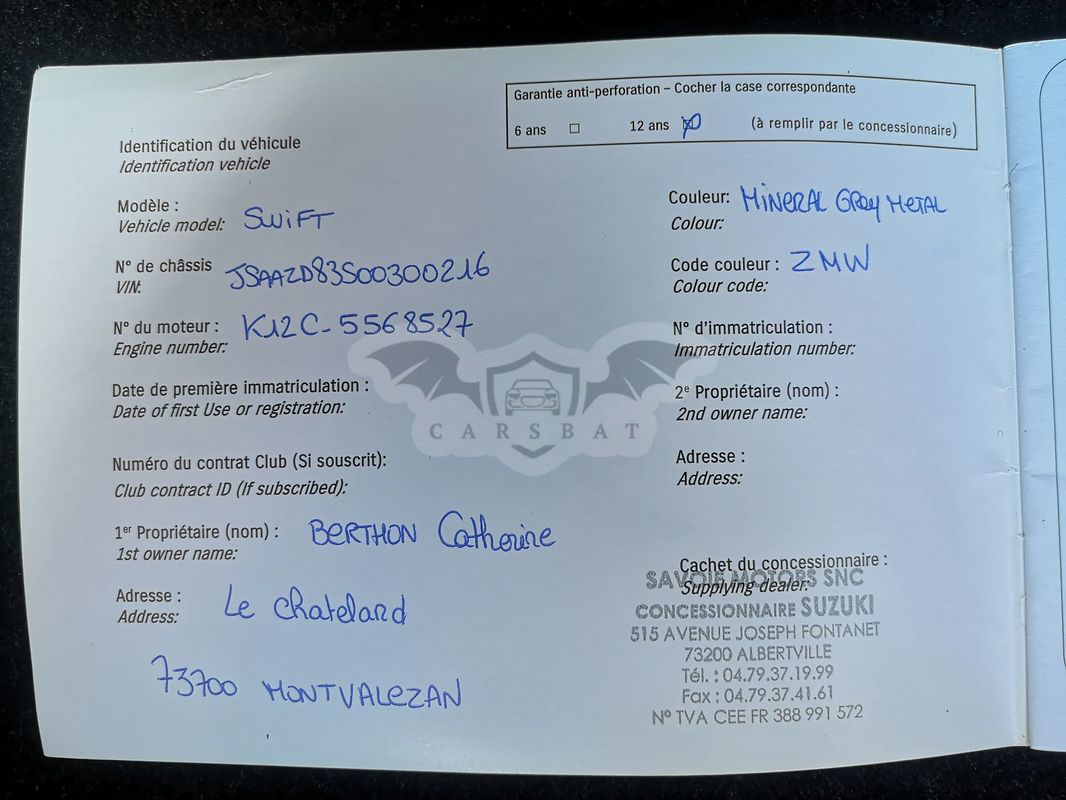 Garantie anti-perforation – Cocher la case correspondante
6 ans 12 ans (à remplir par le concessionnaire)
Identification du véhicule
Identification vehicle
Modèle :
Vehicle model: SWIFT
N° de châssis
VIN: JSAAZD83S00300216
N° du moteur :
Engine number: K12C-5568527
Date de première immatriculation :
Date of first Use or registration:
Numéro du contrat Club (Si souscrit):
Club contract ID (If subscribed):
1er Propriétaire (nom) : BERTHON Catherine
1st owner name:
Adresse : Le Chatelard
Address:
73700 MONTVALEZAN
Couleur: MINERAL GREY METAL
Colour:
Code couleur : ZMW
Colour code:
N° d'immatriculation :
Immatriculation number:
2e Propriétaire (nom) :
2nd owner name:
Adresse :
Address:
Cachet du concessionnaire :
Supplying dealer:
SAVOIE MOTORS SNC
CONCESSIONNAIRE SUZUKI
515 AVENUE JOSEPH FONTANET
73200 ALBERTVILLE
Tél. : 04.79.37.19.99
Fax : 04.79.37.41.61
N° TVA CEE FR 388 991 572
CARSBAT